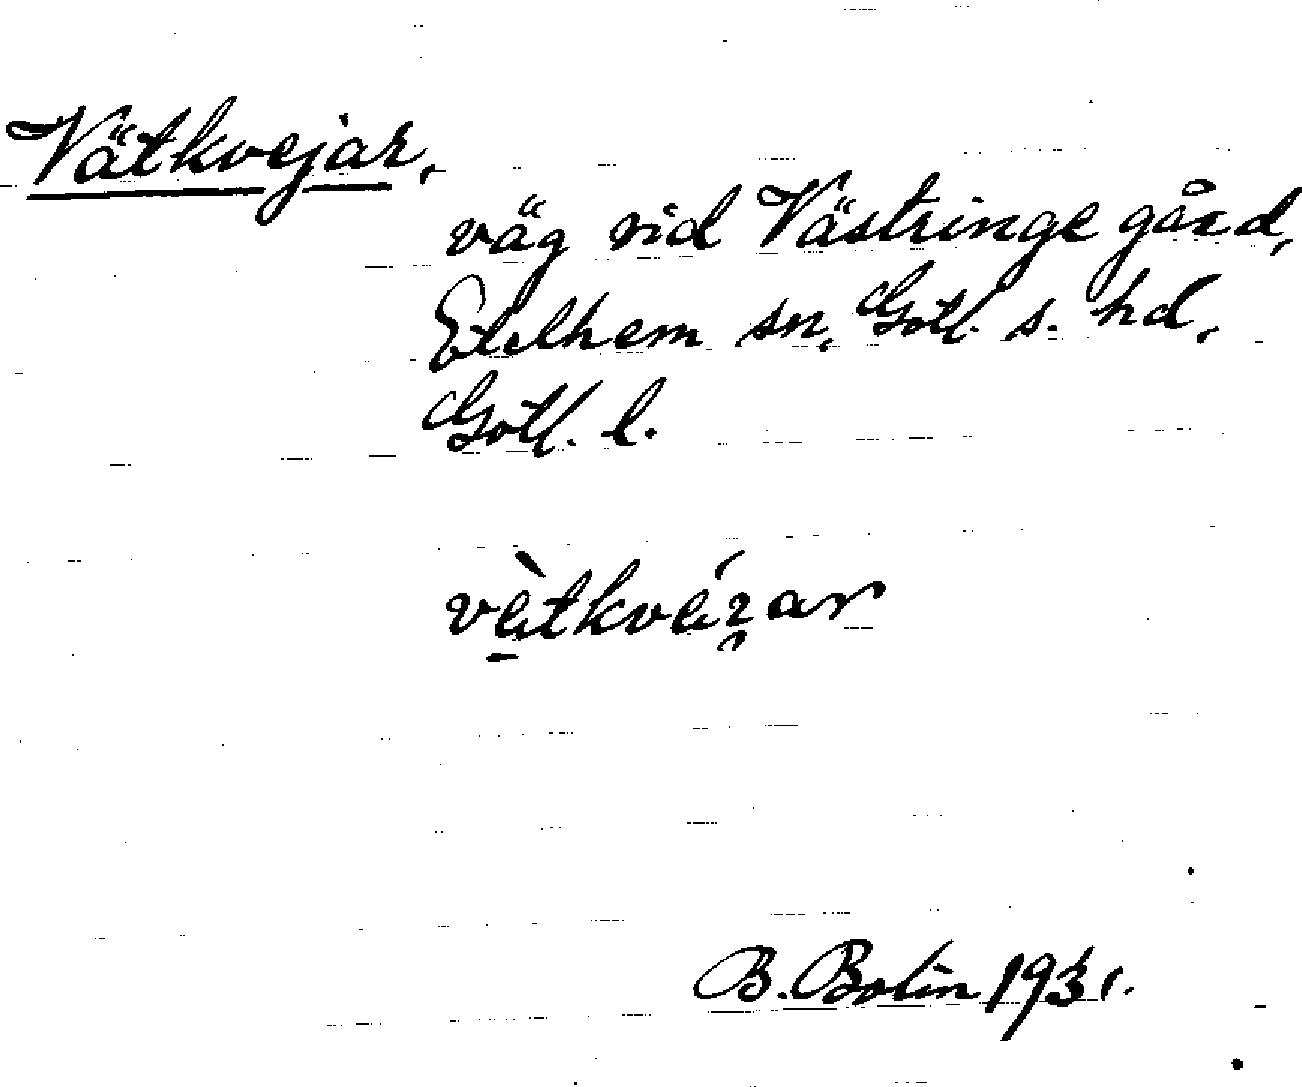 Vätkvejar,
väg vid Västringe gård,
Etelhem sn, Gotl. s. hd,
Gotl. l.
B. Bolin 1931.